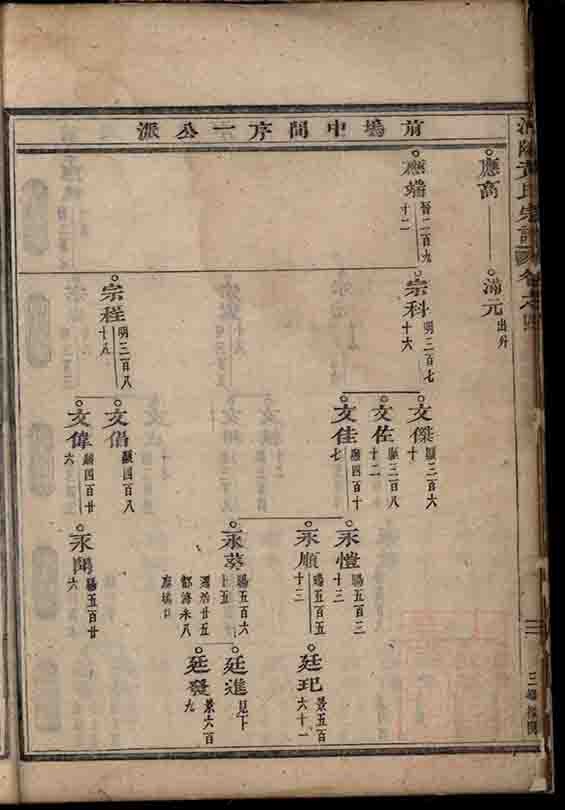 前塢中間序一公派
應高
滿元
出升
應端
晉二百九
十二
宗科
明三百七
十六
宗程
明三百八
十八
文傑
顯三百六
十
文佐
顯三百八
十二
文佳
顯四百十
七
文倡
顯四百八
文偉
顯四百廿
六
永愷
賜五百三
十三
永順
賜五百五
十三
永葵
賜五百六
十五
永開
賜五百廿
六
廷玘
景五百
六十一
廷進
見下
廷發
景六百
九